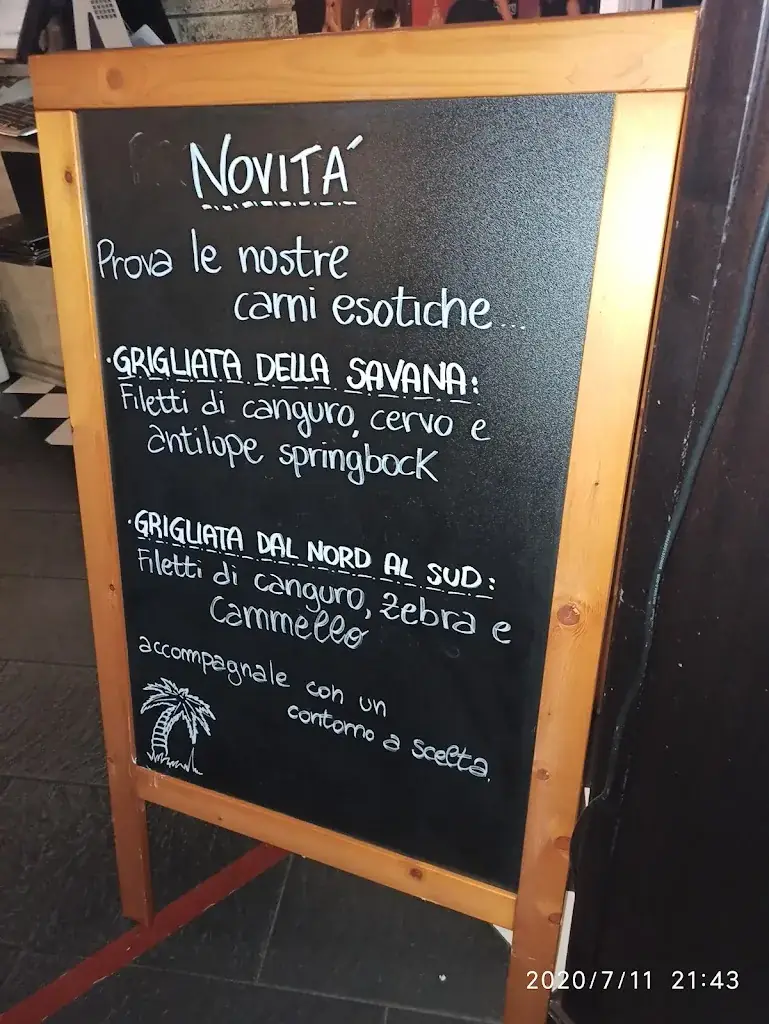 NOVITA'
Prova le nostre
carni esotiche...
• GRIGLIATA DELLA SAVANA:
Filetti di canguro, cervo e
antilope springbock
• GRIGLIATA DAL NORD AL SUD:
Filetti di canguro, zebra e
Cammello
accompagnale con un
contorno a scelta.
2020/7/11 21:43